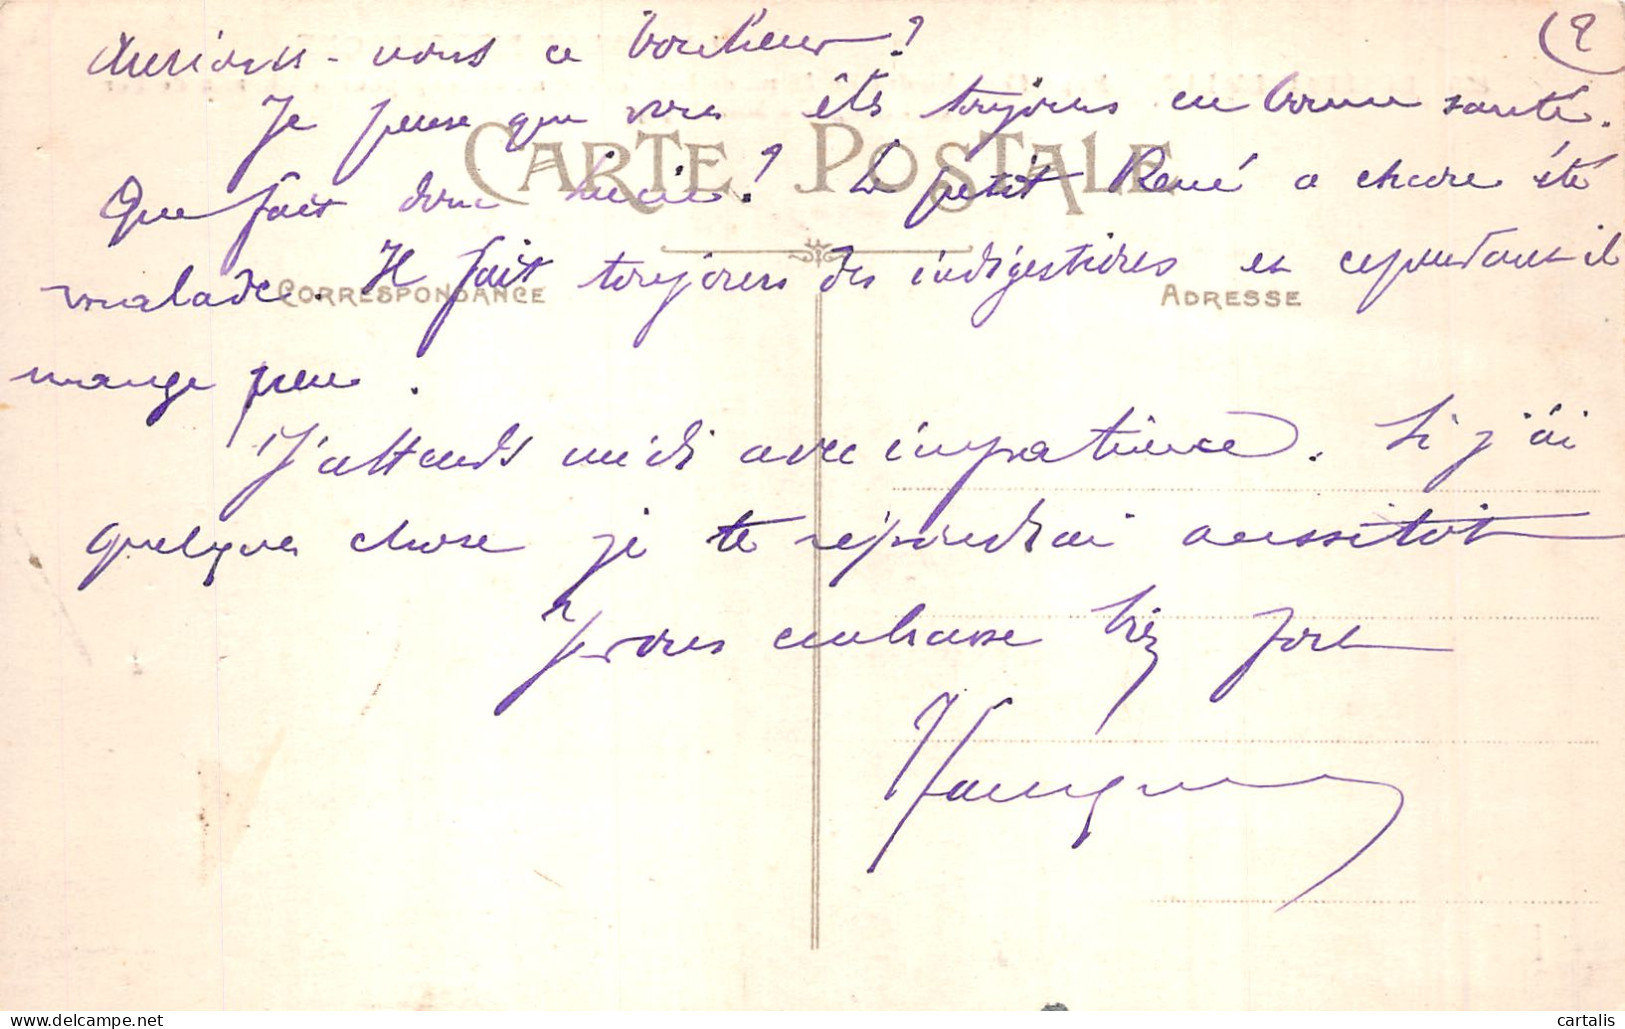 aurions-nous ce bonheur?
Je pense que vous êtes toujours en bonne santé.
CARTE POSTALE
Que fait donc Lucie? Le petit René a encore été
malade. Il fait toujours des indigestions et cependant il
CORRESPONDANCE
ADRESSE
mange peu.
J'attends midi avec impatience. Si j'ai
quelque chose je te répondrai aussitôt
Je vous embrasse très fort
cartalis